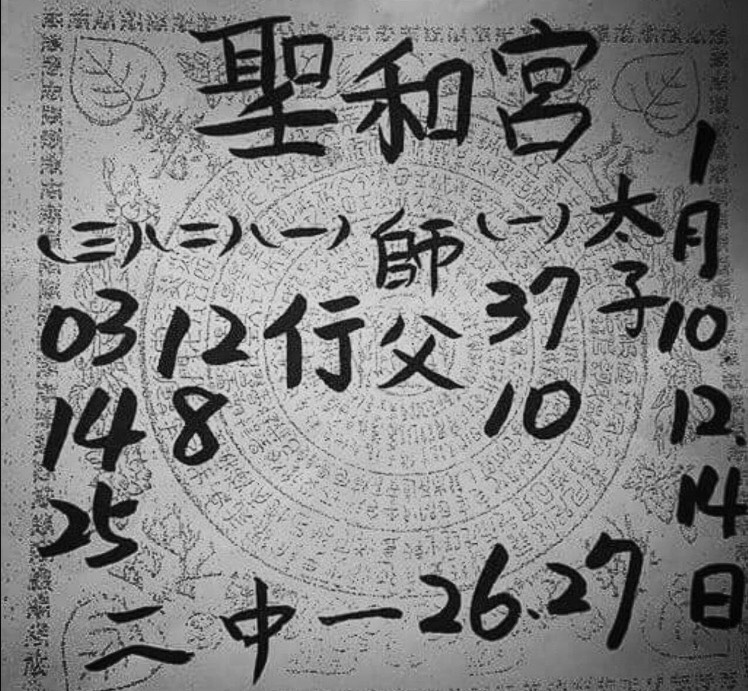 聖和宮
1月10 12. 14日
太子
(一) 37 10
師父
(一) 行
(二) 12 8
(三) 03 14 25
二中一 26.27